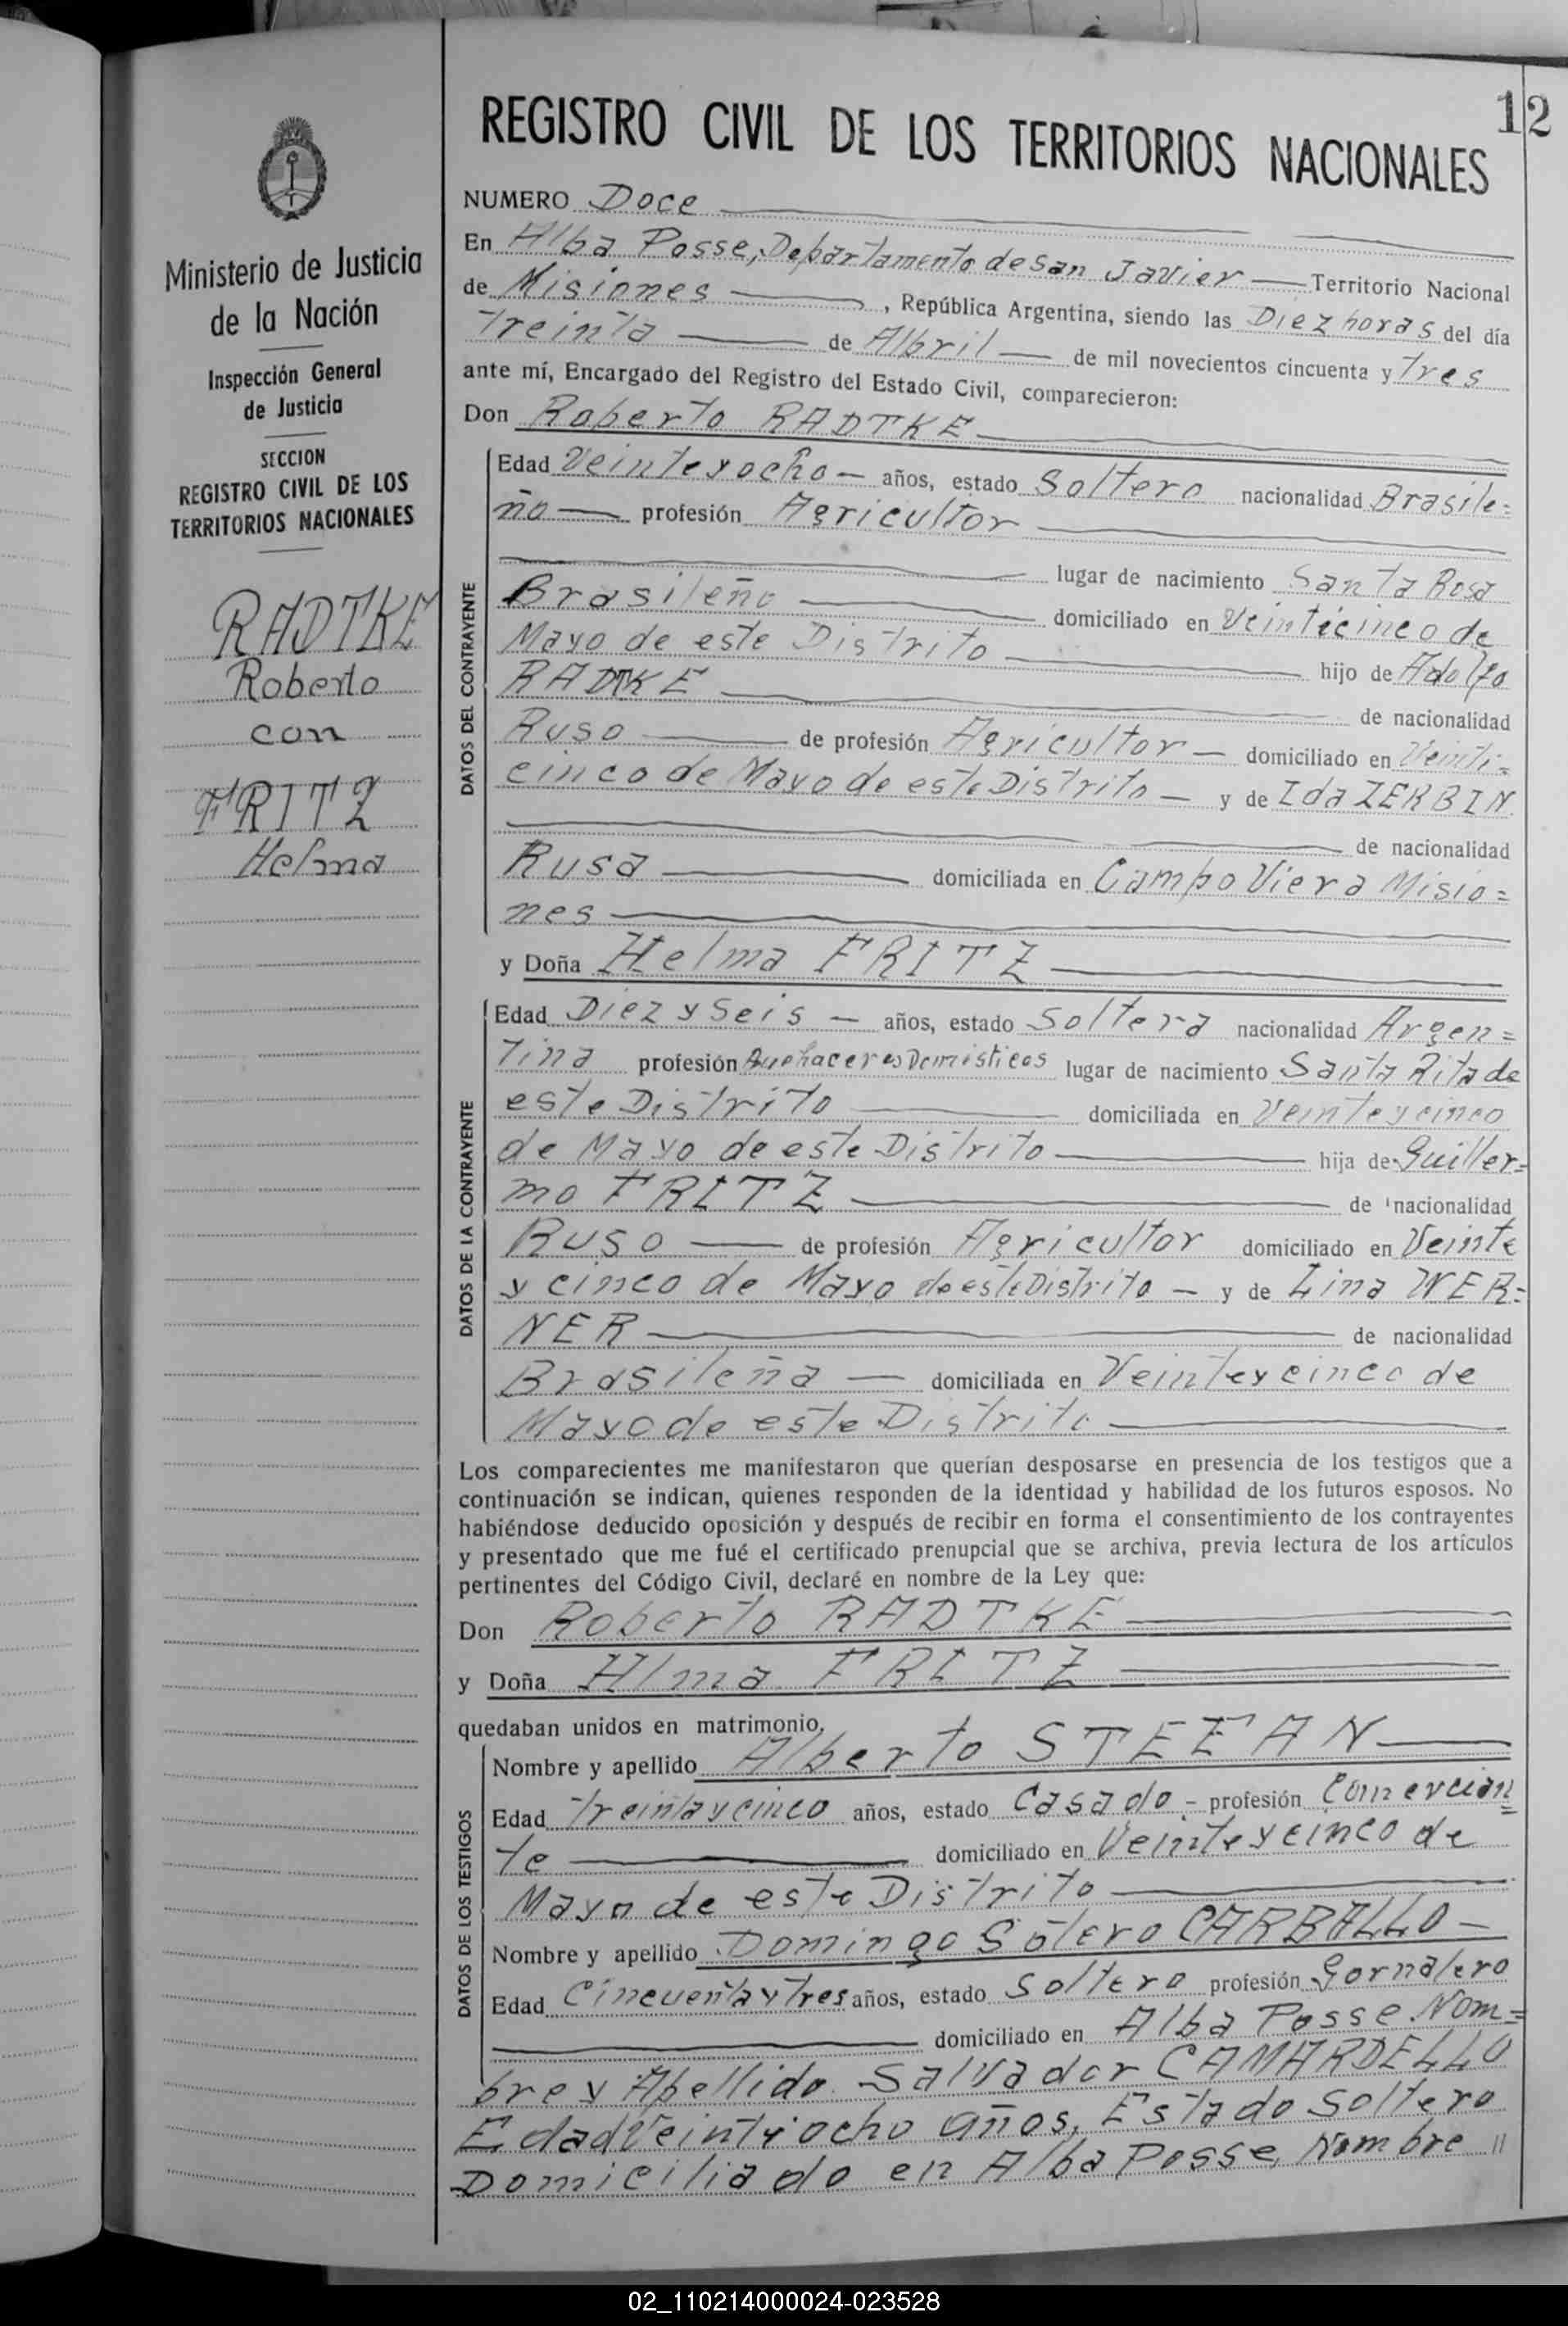 12
REGISTRO CIVIL DE LOS TERRITORIOS NACIONALES
Ministerio de Justicia
de la Nación
Inspección General
de Justicia
SECCION
REGISTRO CIVIL DE LOS
TERRITORIOS NACIONALES
RADTKE
Roberto
con
FRITZ
Helma
NUMERO Doce
En Alba Posse, Departamento de San Javier Territorio Nacional
de Misiones, República Argentina, siendo las Diez horas del día
treinta de Abril de mil novecientos cincuenta y tres
ante mí, Encargado del Registro del Estado Civil, comparecieron:
Don Roberto RADTKE
DATOS DEL CONTRAYENTE
Edad Veinteyocho años, estado Soltero nacionalidad Brasile=
ño profesión Agricultor
lugar de nacimiento Santa Rosa
Brasileño domiciliado en Veinticinco de
Mayo de este Distrito hijo de Adolfo
RADTKE de nacionalidad
Ruso de profesión Agricultor domiciliado en Veinti=
cinco de Mayo de este Distrito y de Ida ZERBIN
de nacionalidad
Rusa domiciliada en Campo Viera Misio=
nes
y Doña Helma FRITZ
DATOS DE LA CONTRAYENTE
Edad Diez y Seis años, estado Soltera nacionalidad Argen=
tina profesión Quehaceres Domésticos lugar de nacimiento Santa Rita de
este Distrito domiciliada en Veinteycinco
de Mayo de este Distrito hija de Guiller=
mo FRITZ de nacionalidad
Ruso de profesión Agricultor domiciliado en Veinte
y cinco de Mayo de este Distrito y de Lina WER=
NER de nacionalidad
Brasileña domiciliada en Veinteycinco de
Mayo de este Distrito
Los comparecientes me manifestaron que querían desposarse en presencia de los testigos que a
continuación se indican, quienes responden de la identidad y habilidad de los futuros esposos. No
habiéndose deducido oposición y después de recibir en forma el consentimiento de los contrayentes
y presentado que me fué el certificado prenupcial que se archiva, previa lectura de los artículos
pertinentes del Código Civil, declaré en nombre de la Ley que:
Don Roberto RADTKE
y Doña Hlma FRITZ
quedaban unidos en matrimonio.
DATOS DE LOS TESTIGOS
Nombre y apellido Alberto STEFAN
Edad Treintaycinco años, estado Casado profesión Comercian=
te domiciliado en Veinteycinco de
Mayo de este Distrito
Nombre y apellido Domingo Sótero CARBALLO
Edad Cincuentaytres años, estado Soltero profesión Gornalero
domiciliado en Alba Posse. Nom=
bre y Apellido Salvador CAMARDELLO
Edad Veintiocho años, Estado Soltero
Domiciliado en Alba Posse, Nombre //
02_110214000024-023528